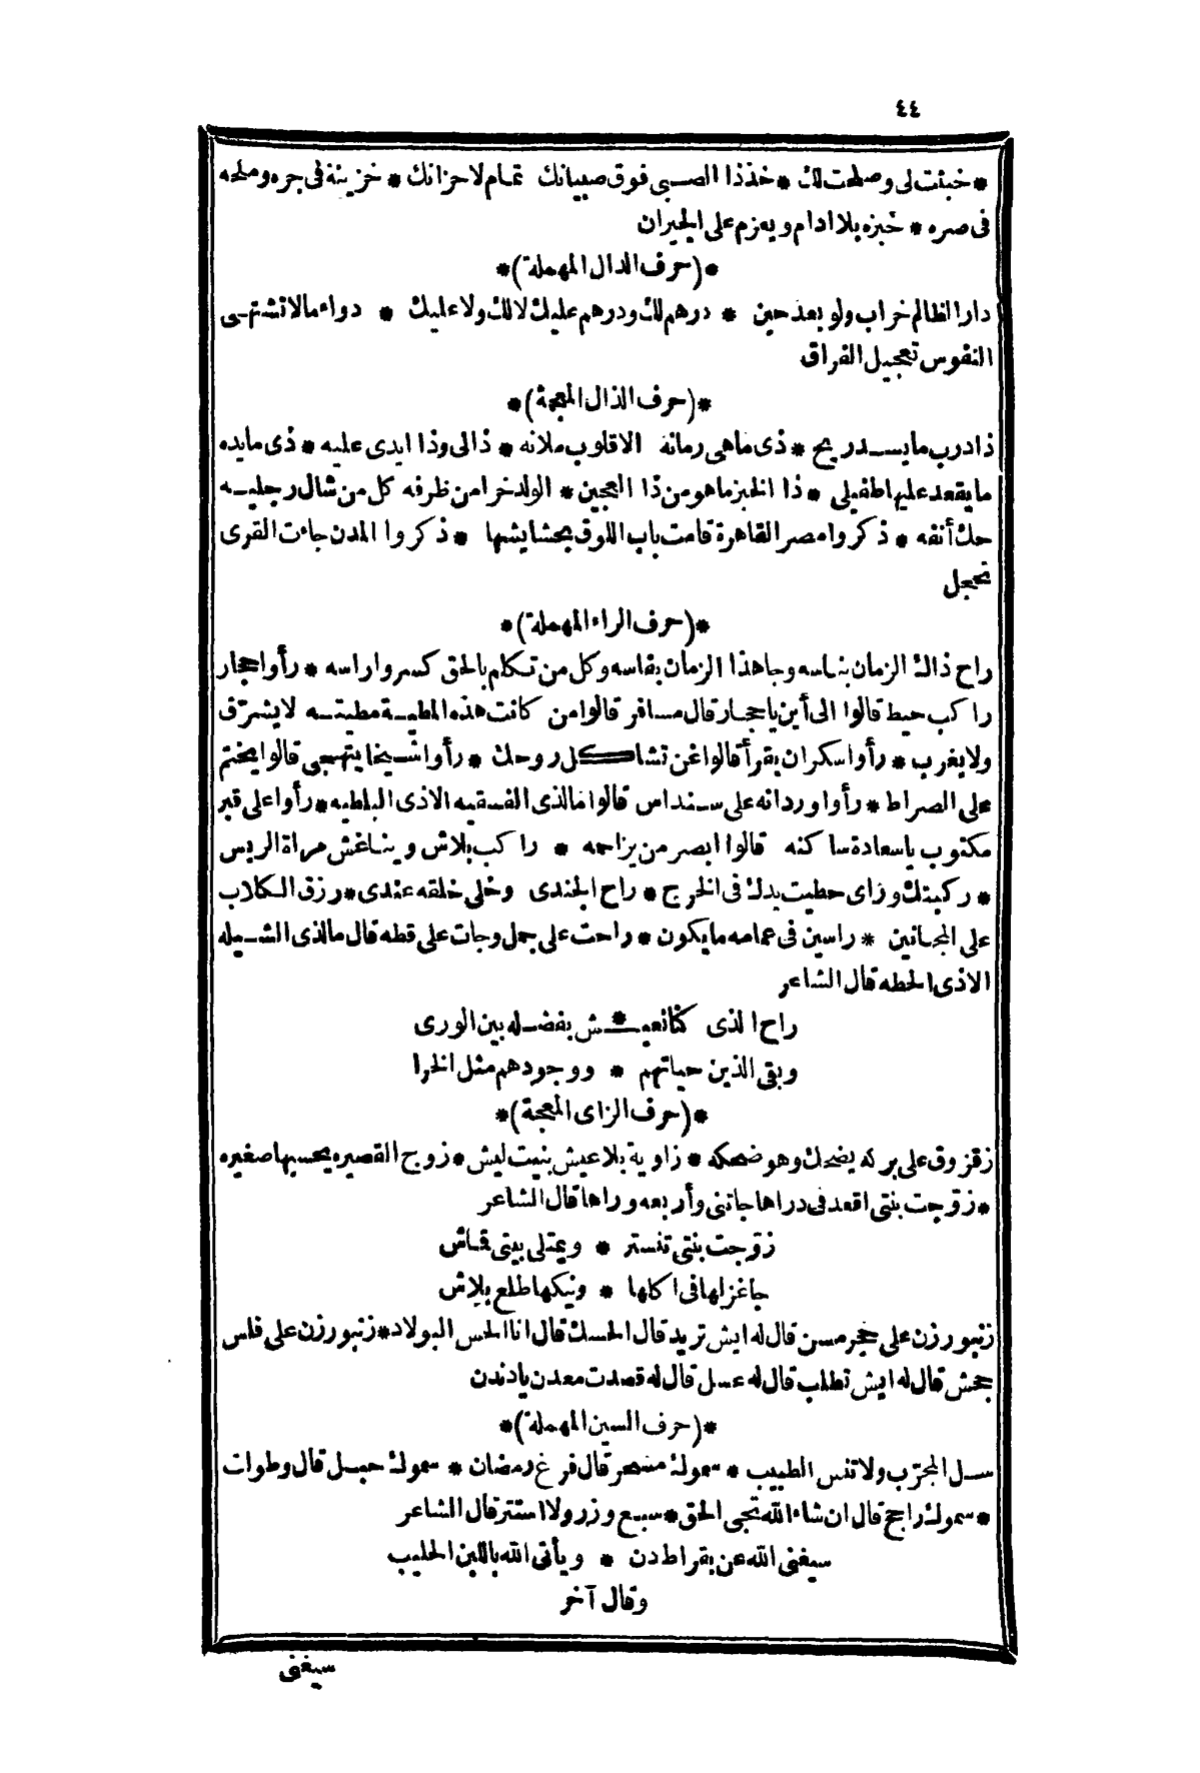 ٤٤
* خبئت لى وصلحت لك * خذ ذا الصبى فوق صبيانك تمام لاحزانك * خزينة فى جره وملحه
فى صره * خبزه بلا ادام ويعزم على الجيران
*(حرف الدال المهملة)*
دار الظالم خراب ولو بعد حين * درهم لك ودرهم عليك لا لك ولا عليك * دواء مالا تشتهى
النفوس تعجيل الفراق
*(حرف الذال المعجمة)*
ذا درب ما يسد ريح * ذى ماهى رمانه الا قلوب ملانه * ذا لى وذا ايدى عليه * ذى مايده
ما يقعد عليها طفيلى * ذا الخبز ماهو من ذا العجين * الولد خرا من ظرفه كل من شال رجليه
حك أنفه * ذكروا مصر القاهرة قامت باب اللوق بحشايشها * ذكروا المدن جاءت القرى
تحجل
*(حرف الراء المهملة)*
راح ذاك الزمان بناسه وجا هذا الزمان بفاسه وكل من تكلم بالحق كسروا راسه * رأوا حجار
راكب حيط قالوا الى أين يا حجار قال مسافر قالوا من كانت هذه المطية مطيته لا يشرّق
ولا يغرب * رأوا سكران يقرأ قالوا غن تشاكل روحك * رأوا شيخا يتهجى قالوا يختم
على الصراط * رأوا وردانه على سنداس قالوا ما لذى الفسقيه الا ذى البلطيه * رأوا على قبر
مكتوب يا سعادة ساكنه قالوا ابصر من يزاحمه * راكب بلاش ويناغش مراة الريس
* ركبتك وزاى حطيت يدك فى الخرج * راح الجندى وخلى خلقه عندى * رزق الكلاب
على المجانين * راسين فى عمامه ما يكون * راحت على جمل وجات على قطه قال ما لذى الشيله
الا ذى الحطه قال الشاعر
راح الذى كنا نعيـ * ـش بفضله بين الورى
وبقى الذين حياتهم * ووجودهم مثل الخرا
*(حرف الزاى المعجمة)*
زقزوق على بركه يضحك وهو ضحكه * زاوية بلا عيش بنيت ليش * زوج القصيره يحسبها صغيره
* زوّجت بنتى اقعد فى دراها جاتنى وأربعه وراها قال الشاعر
زوّجت بنتى تنستر * ويمتلى بيتى قماش
جا غزلها فى اكلها * ونيكها طلع بلاش
زنبور زن على حجر مسن قال له ايش تريد قال الحسك قال انا الحس البولاد * زنبور زن على فلس
جحش قال له ايش تطلب قال له عسل قال له قصدت معدن يا دندن
*(حرف السين المهملة)*
سل المجرّب ولا تنس الطبيب * سموك مسحر قال فرغ رمضان * سموك حبل قال وطوات
* سموك راجح قال ان شاء الله تجى الحق * سبع وزر ولا استتر قال الشاعر
سيغنى الله عن بقراط دن * ويأتى الله باللبن الحليب
وقال آخر
سيغنى